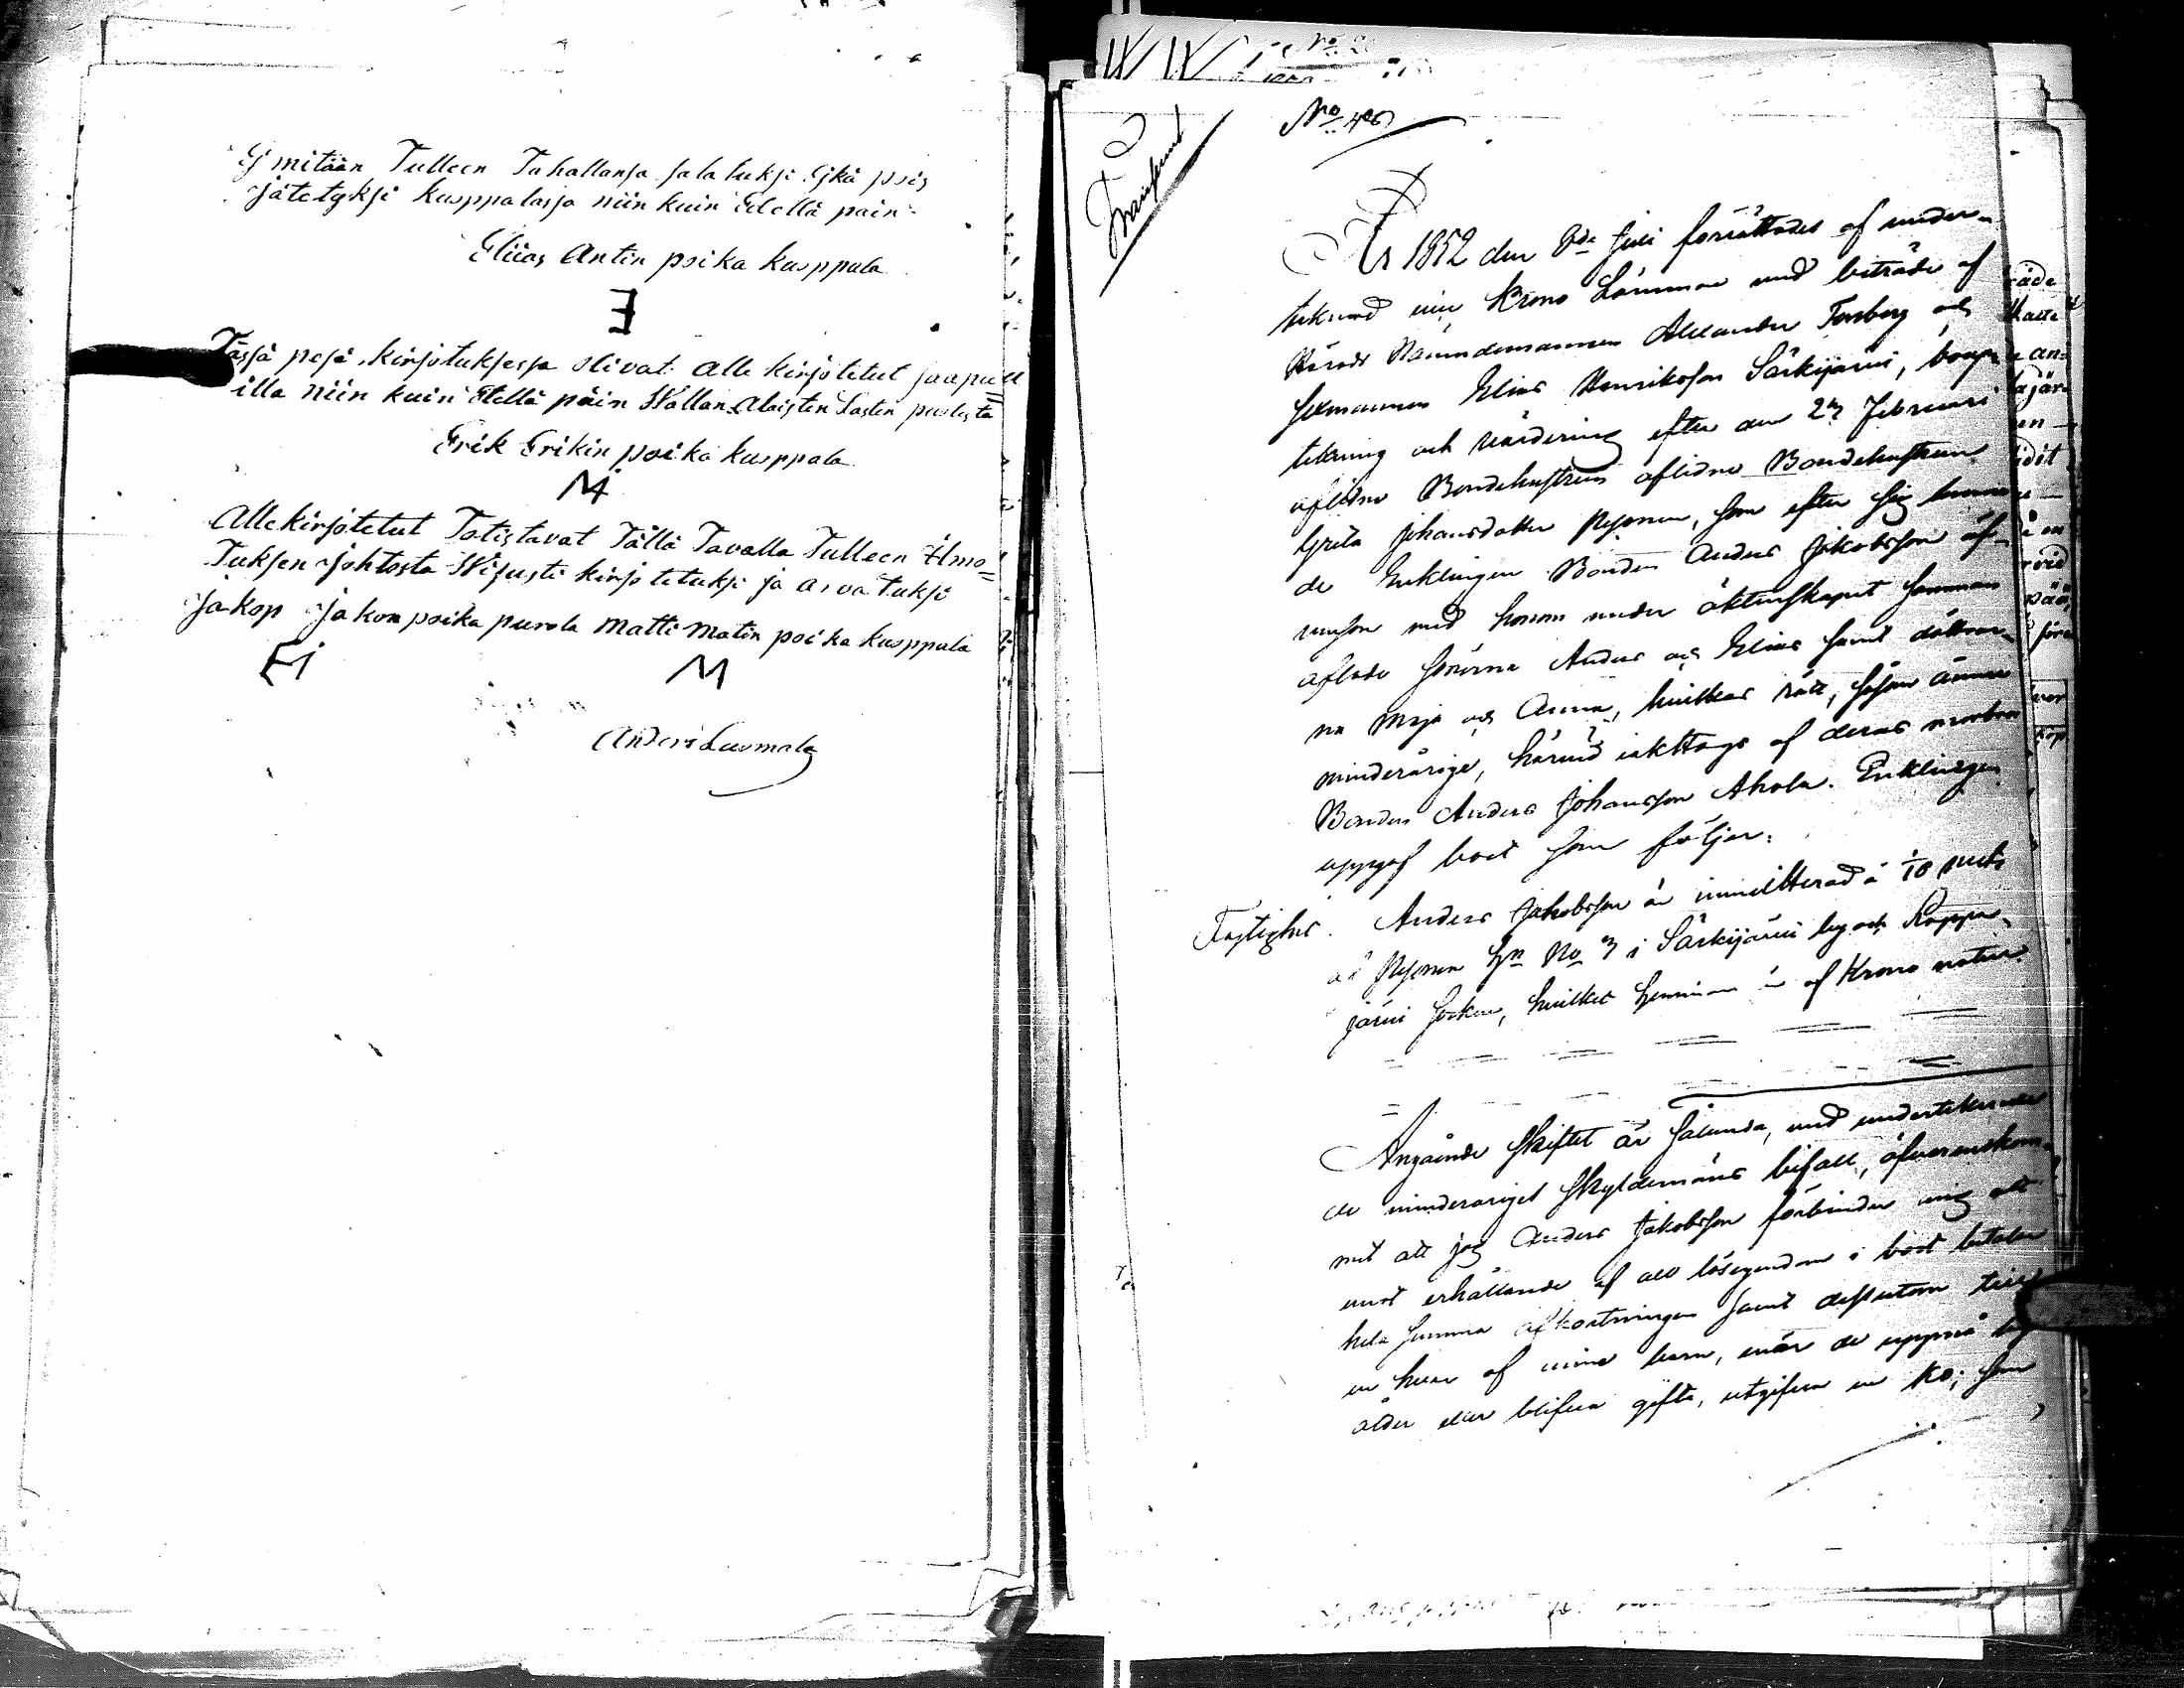 Ej mitään Tulleen Tahallansa salatuksi Ejkä pois
jätetyksi kuoppalassa niin kuin Edellä päin
Eliias Antin poika kuoppala
E
Tässä pesä kirjotuksessa Olivat Alle kirjotetut saapu=
illa niin kuin Etellä päin Wallan Alaisten Lasten puolesta
Erik Erikin poika kuoppala
M
Alle kirjotetut Totistavat Tällä Tavalla Tulleen Ilmo=
Tuksen johtosta Wisusti kirjotetuksi ja arvatuksi
Jakop Jakon poika purola Matti Matin poika kuoppala
M
Anders Luomala
No 
År 1852 den Juli förrättades af under-
tecknad Krono Länsman med biträde af
Härads Nämndemannen Alexander Forsberg och
Sexmannen Elias Henriksson Särkijärvi, boupp-
tekning och värdering efter den 27 Februari
aflidne Bondehustrun aflidne Bondehustrun
Greta Johansdotter som efter sig lemna-
de Enklingen Bonden Anders Jakobsson äf-
vensom med honom under äktenskapet samman
aflade sönerna Anders och Elias samt döttrar-
na Maja och Anna, hvilkas rätt, såsom ännu
minderårige, härvid iakttogs af deras morbror
Bonden Anders Johansson Ahola. Enklingen
uppgaf boet som följer:
Fastighet. Anders Jakobsson är immitterad å
å No 3 i Särkijärvi by och Kappa-
järvi Socken, hvilket hemman är af Krono natur.
Angående skiftet är sålunda, med undertecknade
de minderåriges skyldemäns bifall, öfverenskom-
met att jag Anders Jakobsson förbinder mig att
emot erhållande af all lösegendom i boet betala
hela summa afkortningen samt dessutom till
en hvar af mina barn, när de uppnå
ålder eller blifva gifta, utgifva en ko; som